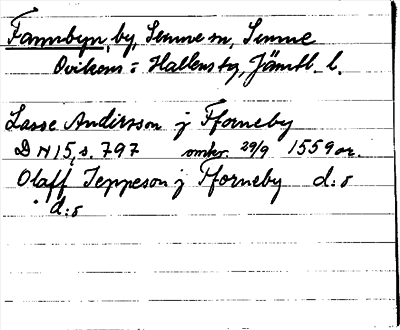 Fannbyn, by, Sunne sn, Sunne
Ovikens o Hallens tg, Jämtl. l.
Lasse Andersson j Fforneby
D N 15, s. 797 omkr. 29/9 1559 or.
Olaff Jeppeson j Fforneby d:o
d:o